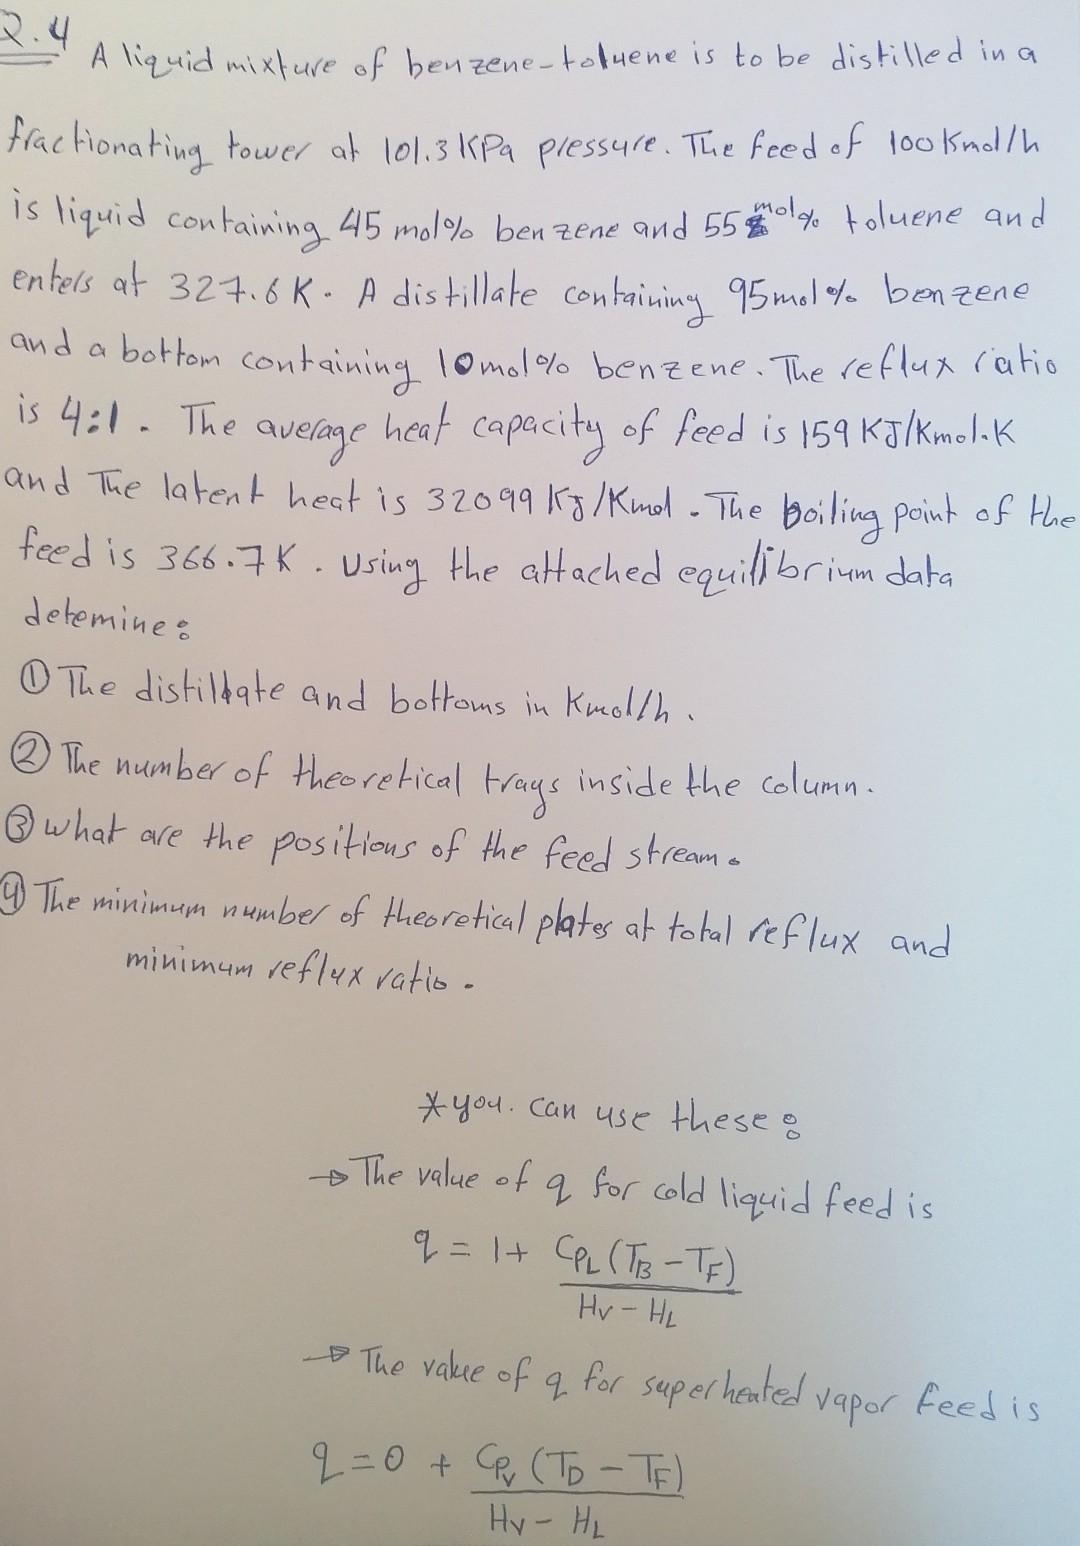 Q.4 A liquid mixture of benzene-toluene is to be distilled in a
fractionating tower at 101.3 KPa pressure. The feed of 100 Kmol/h
is liquid containing 45 mol% benzene and 55 mol% toluene and
enters at 327.6 K. A distillate containing 95 mol% benzene
and a bottom containing 10 mol% benzene. The reflux ratio
is 4:1. The average heat capacity of feed is 159 KJ/Kmol.K
and The latent heat is 32099 KJ/Kmol. The boiling point of the
feed is 366.7 K. Using the attached equilibrium data
detemine:
① The distillate and bottoms in Kmol/h.
② The number of theoretical trays inside the column.
③ what are the positions of the feed stream.
④ The minimum number of theoretical plates at total reflux and
minimum reflux ratio.
*you. can use these:
→ The value of q for cold liquid feed is
q = 1 + CPL (TB - TF)
Hv - HL
→ The value of q for superheated vapor feed is
q = 0 + CPv (TD - TF)
Hv - HL